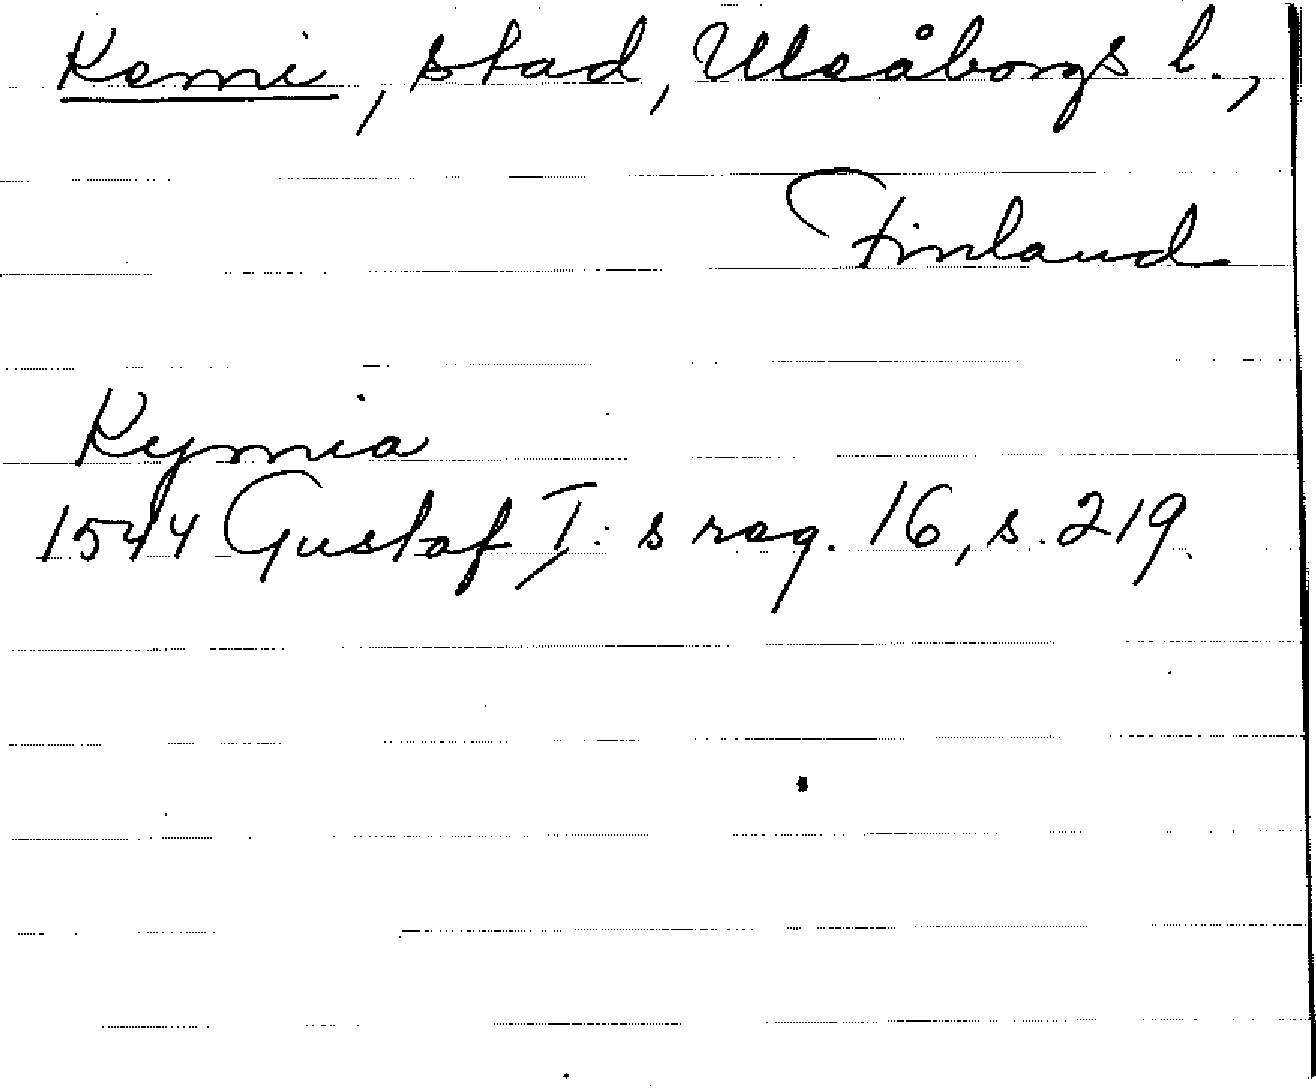 Kemi, stad, Uleåborgs l.,
Finland
Kymia
1544 Gustaf I:s reg. 16, s. 219.